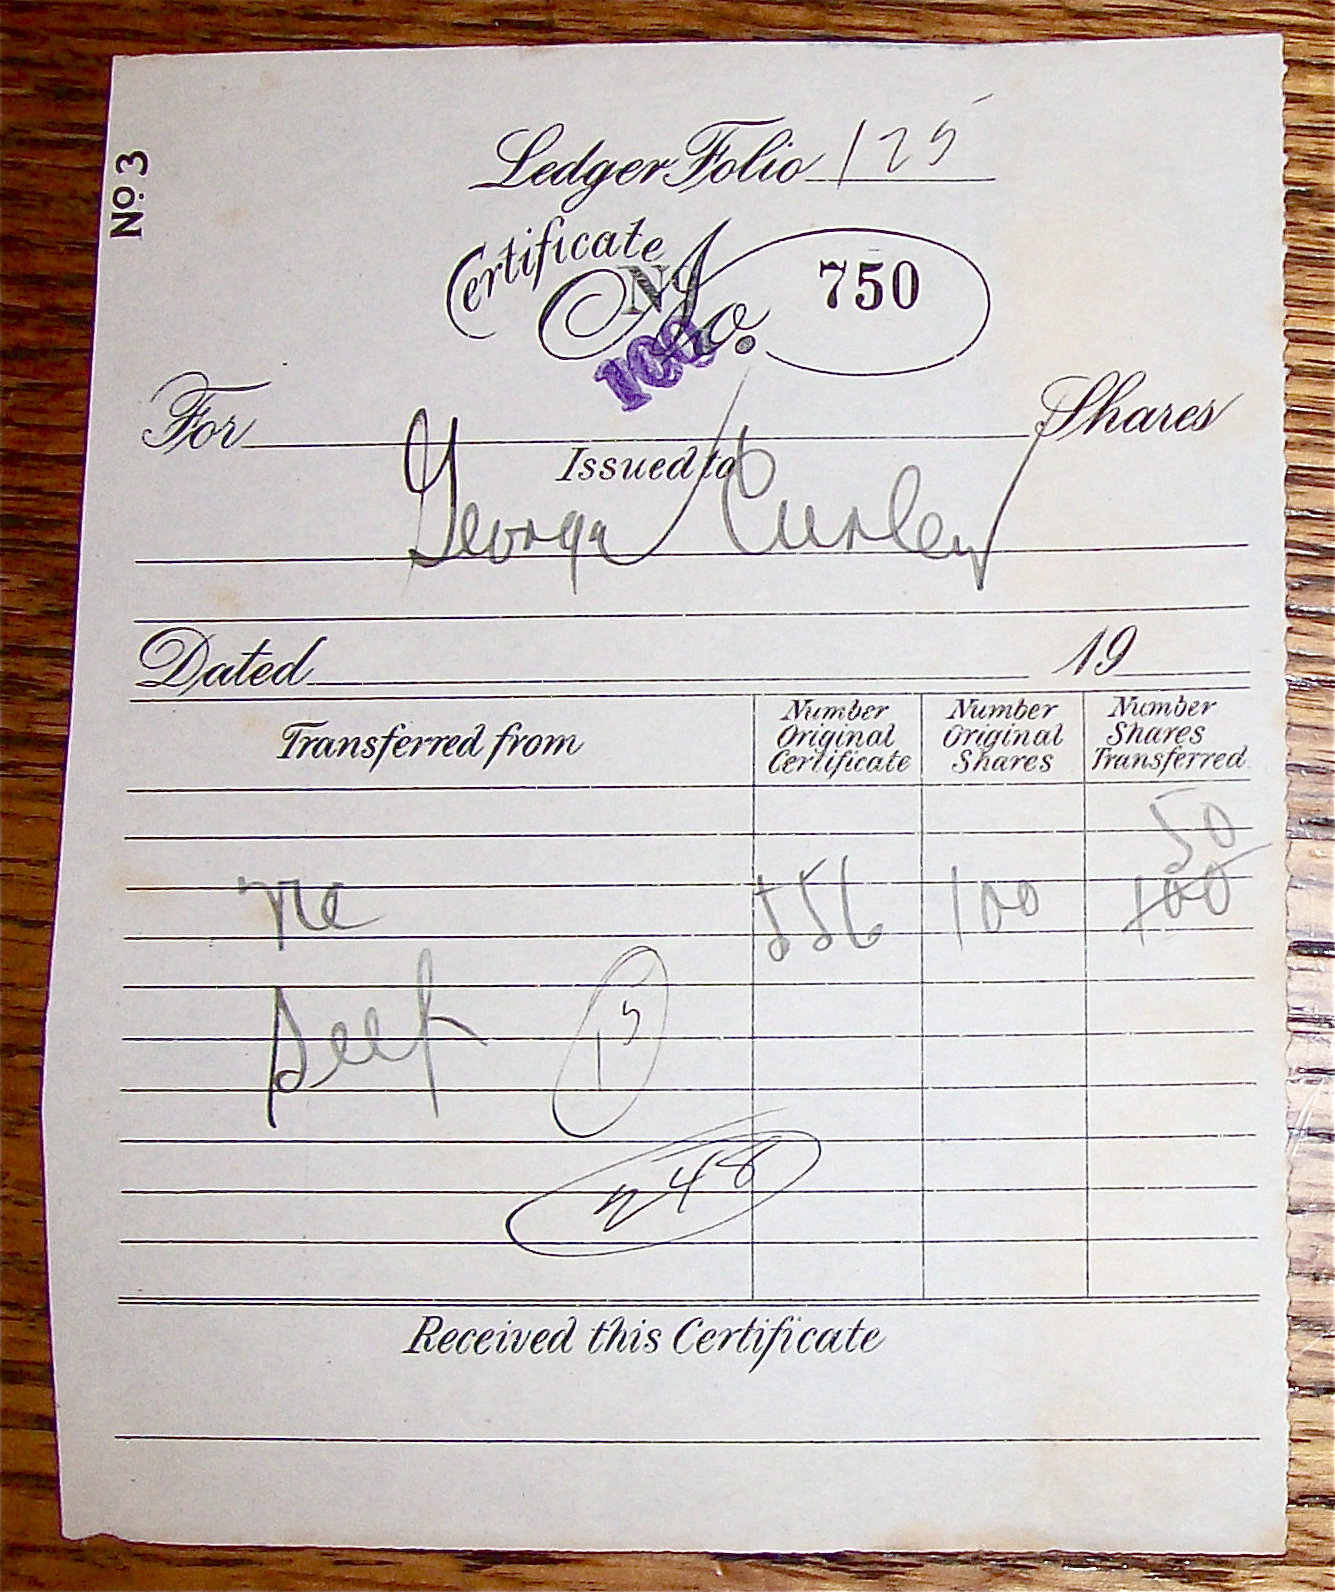 No. 3
Ledger Folio 125
Certificate
No. 750
No
100
For Shares
Issued to
George Curley
Dated 19
Transferred from Number Original Certificate Number Original Shares Number Shares Transferred
50
556 100 100
Self 15
48
Received this Certificate